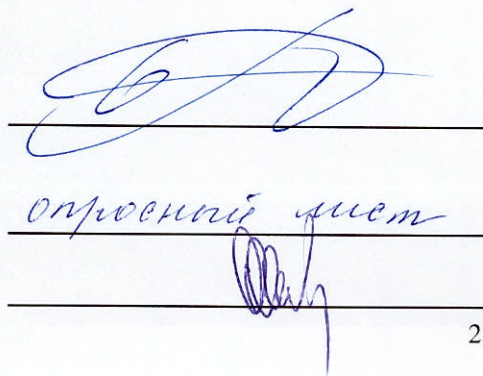 опросный лист
2